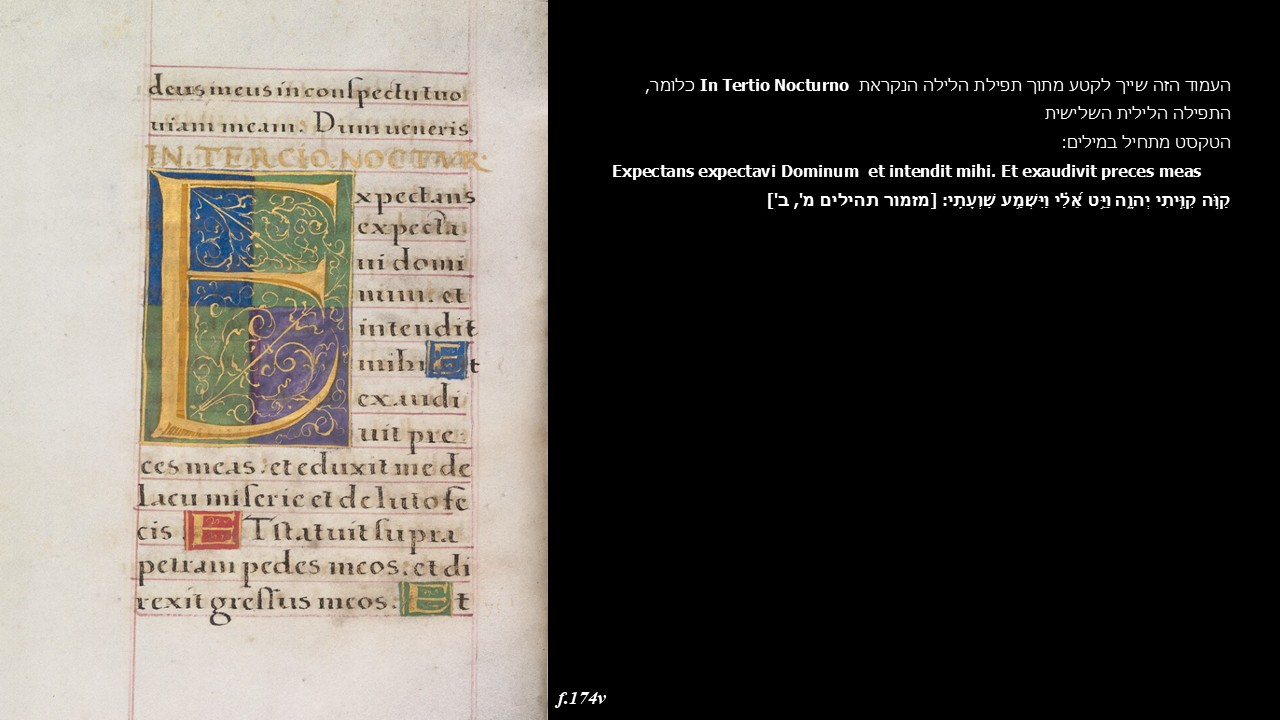 deus meus in conſpectu tuo
uiam meam. Dum ueneris
IN. TERCIO. NOCTVR.
Expectans
expecta
ui domi
num. et
intendit
mihi Et
exaudi
uit pre
ces meas. et eduxit me de
lacu miſerie et de luto fe
cis ET ſtatuit ſupra
petram pedes meos. et di
rexit greſſus meos. Et
העמוד הזה שייך לקטע מתוך תפילת הלילה הנקראת In Tertio Nocturno כלומר,
התפילה הלילית השלישית
הטקסט מתחיל במילים:
Expectans expectavi Dominum et intendit mihi. Et exaudivit preces meas
קַוֺּ֣ה קִוִּ֣יתִי יְהוָ֑ה וַיֵּ֥ט אֵ֝לַ֗י וַיִּשְׁמַ֥ע שַׁוְעָתִֽי: [מזמור תהילים מ', ב']
f.174v